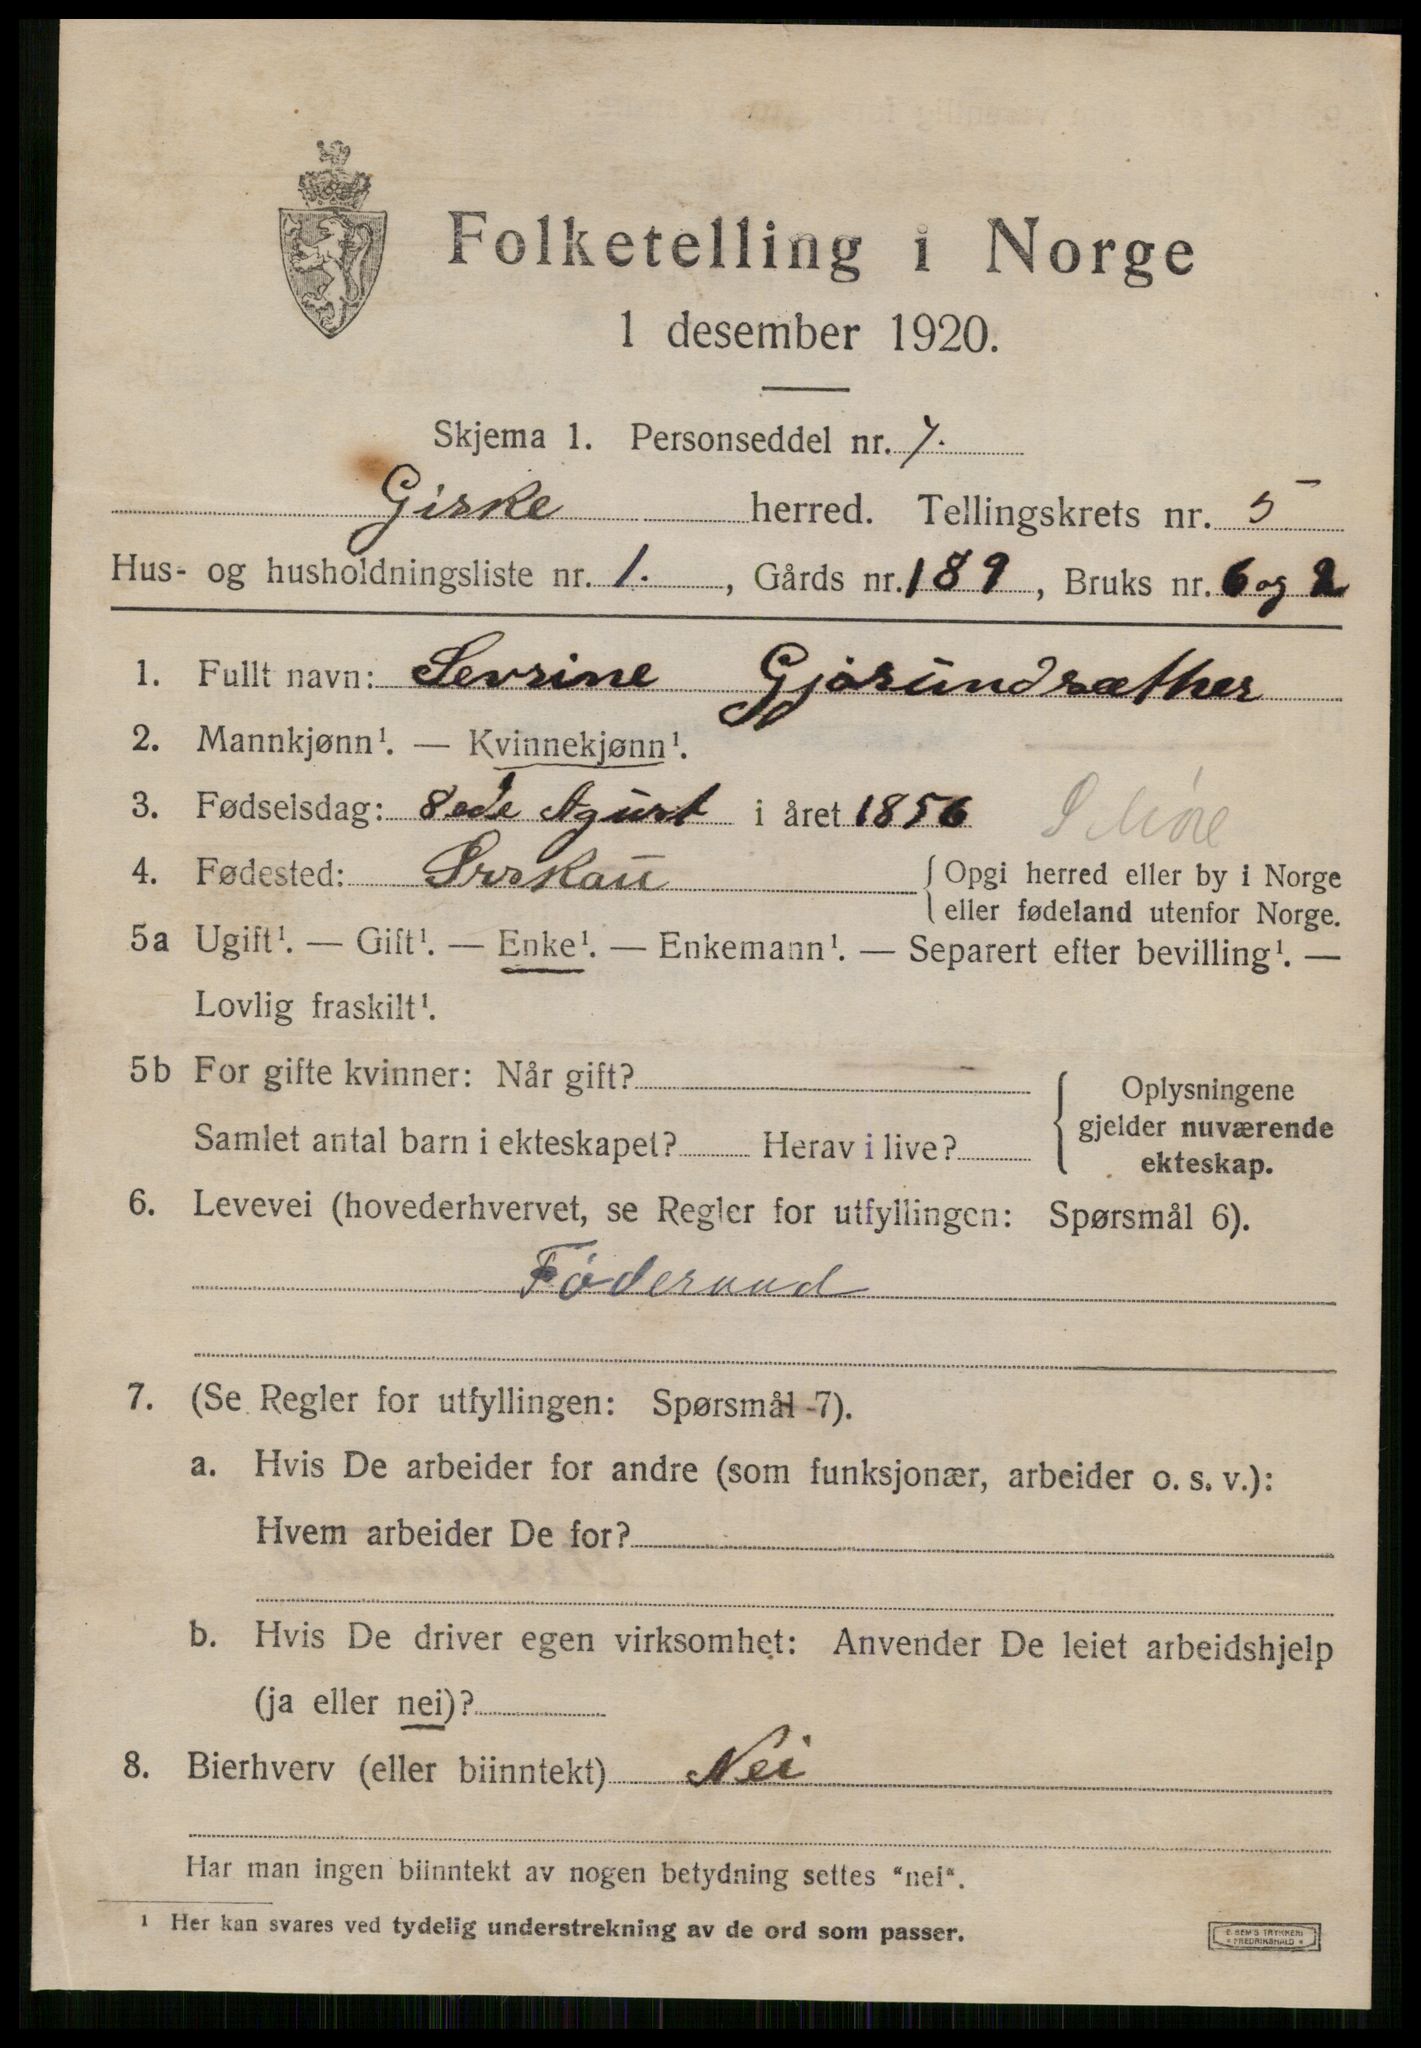 Folketelling i Norge
1 desember 1920.
Skjema 1. Personseddel nr. 7.
Giske herred. Tellingskrets nr. 5
Hus- og husholdningsliste nr. 1., Gårds nr. 189, Bruks nr. 6 og 2
1. Fullt navn: Sevrine Gjøsundsæther
2. Mannkjønn¹. — Kvinnekjønn¹.
3. Fødselsdag: 8ede Agust i året 1856 S Møre
4. Fødested: { Opgi herred eller by i Norge
eller fødeland utenfor Norge.
5a Ugift¹. — Gift¹. — Enke¹. — Enkemann¹. — Separert efter bevilling¹. —
Lovlig fraskilt¹.
5b For gifte kvinner: Når gift?
Samlet antal barn i ekteskapet? Herav i live?
{ Oplysningene
gjelder nuværende
ekteskap.
6. Levevei (hovederhvervet, se Regler for utfyllingen: Spørsmål 6).
Føderaad
7. (Se Regler for utfyllingen: Spørsmål 7).
a. Hvis De arbeider for andre (som funksjonær, arbeider o. s. v.):
Hvem arbeider De for?
b. Hvis De driver egen virksomhet: Anvender De leiet arbeidshjelp
(ja eller nei)?
8. Bierhverv (eller biinntekt) Nei
Har man ingen biinntekt av nogen betydning settes "nei".
¹ Her kan svares ved tydelig understrekning av de ord som passer.
E. SEM'S TRYKKERI
FREDRIKSHALD